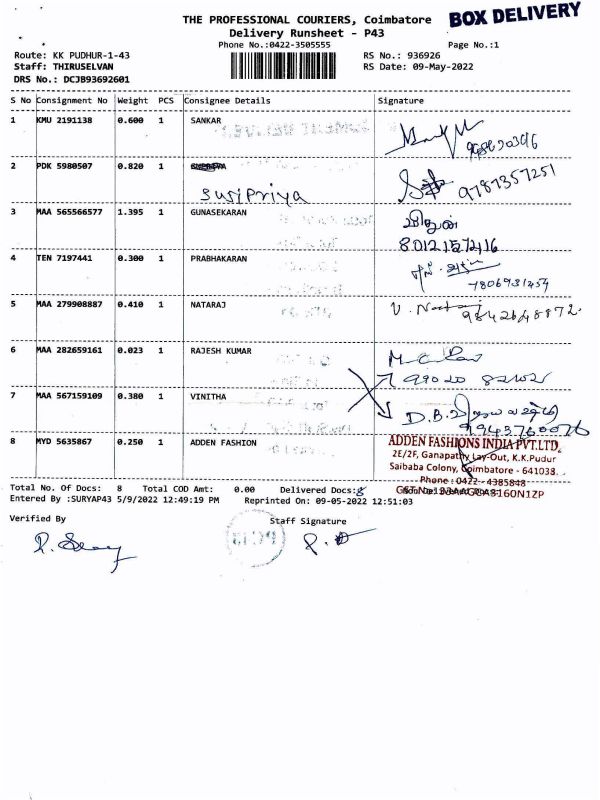 THE PROFESSIONAL COURIERS, Coimbatore
BOX DELIVERY
Delivery Runsheet - P43
Phone No.:0422-3505555
Page No.:1
Route: KK PUDHUR-1-43
RS No.: 936926
Staff: THIRUSELVAN
RS Date: 09-May-2022
DRS No.: DCJB93692601
S No Consignment No Weight PCS Consignee Details Signature
1 KMU 2191138 0.600 1 SANKAR
2 PDK 5980507 0.820 1
Suripriya 9787357251
3 MAA 565566577 1.395 1 GUNASEKARAN
4 TEN 7197441 0.300 1 PRABHAKARAN
7806931454
5 MAA 279908887 0.410 1 NATARAJ V. Nataraj
9842648872
6 MAA 282659161 0.023 1 RAJESH KUMAR
7 MAA 567159109 0.380 1 VINITHA
D.B.
9943760076
8 MYD 5635867 0.250 1 ADDEN FASHION
ADDEN FASHIONS INDIA PVT.LTD.
2E/2F, Ganapathy Lay-Out, K.K.Pudur
Saibaba Colony, Coimbatore - 641038.
Phone : 0422 - 4385848
Total No. Of Docs: 8 Total COD Amt: 0.00 Delivered Docs: 8
Entered By :SURYAP43 5/9/2022 12:49:19 PM Reprinted On: 09-05-2022 12:51:03
Verified By Staff Signature